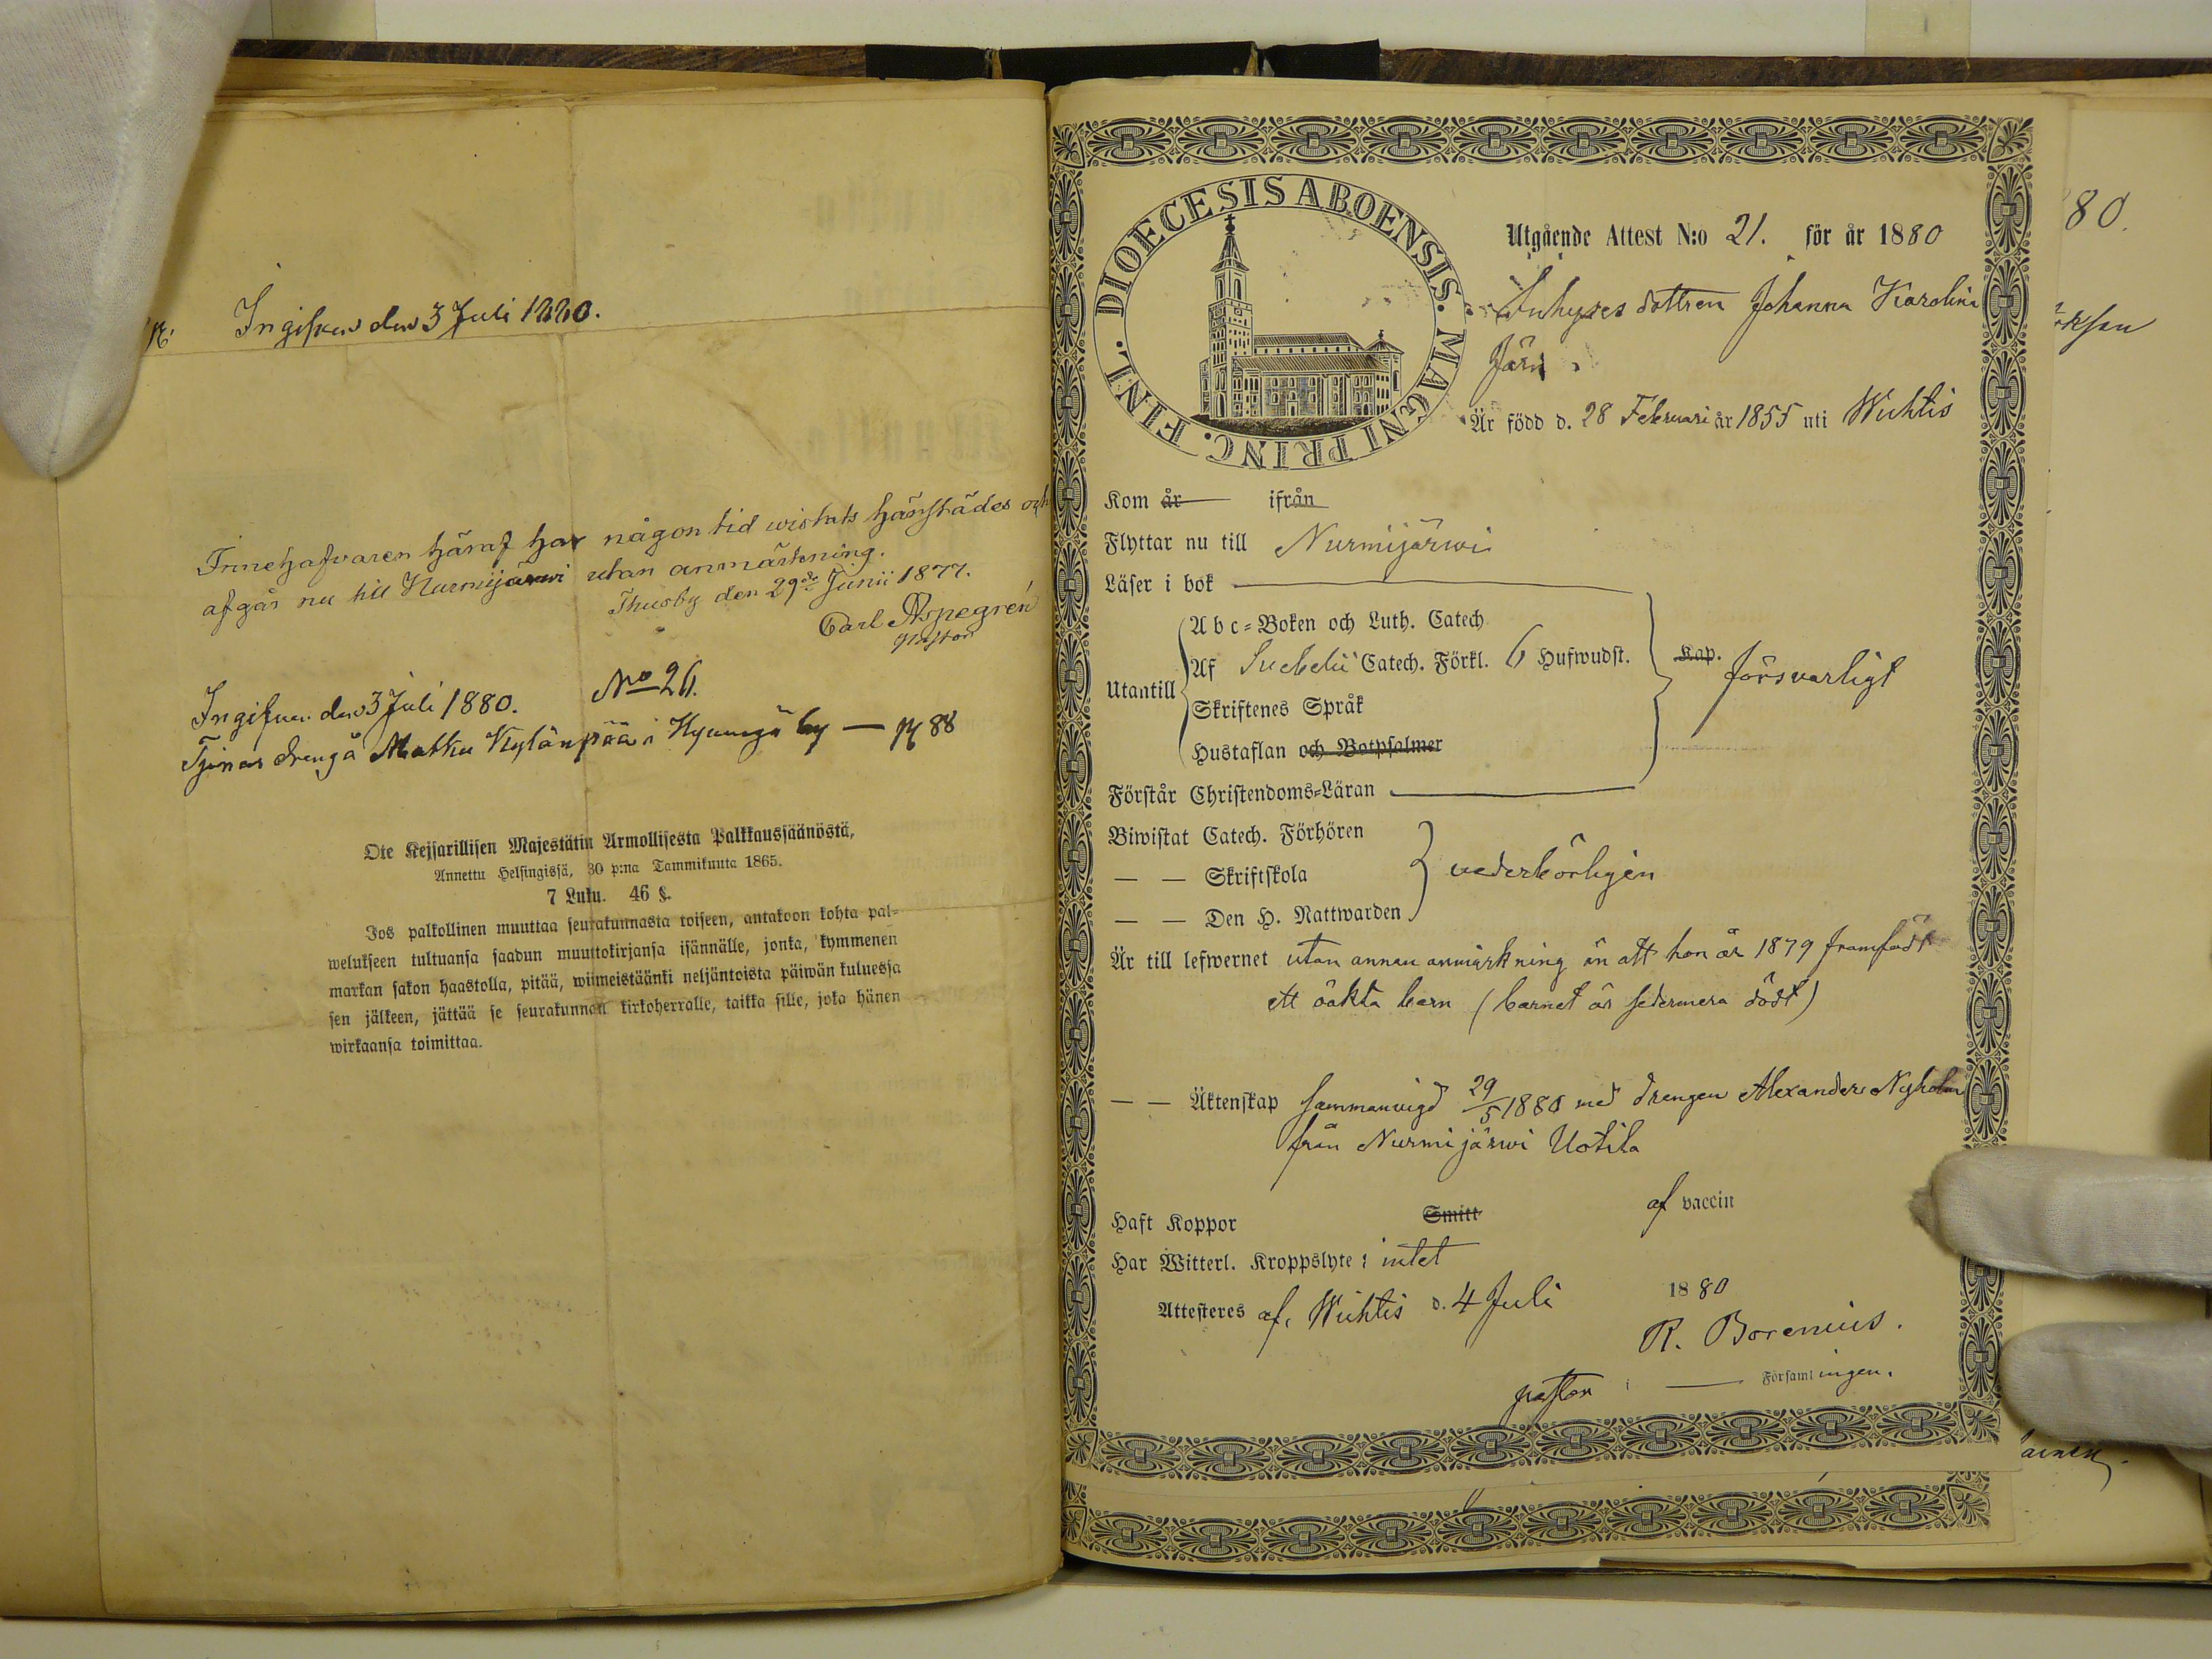 Ingifven den 3 Juli 1880.
Innehafvaren häraf har någon tid wistats härstädes och
afgår nu till Nurmijärwi utan anmärkning.
Thusby den 29de Junii 1877.
Carl Aspegrén
pastor
Ingifven den 3 Juli 1880. No 26.
Tjenar drengå Matku Kylänpää i Hyvingä by — 88
Ote Keisarillisen Majestätin Armollisesta Palkkaussäänöstä,
Annettu Helsingissä, 30 p:na Tammikuuta 1865.
7 Luku. 46 §.
Jos palkollinen muuttaa seurakunnasta toiseen, antakoon kohta pal-
welukseen tultuansa saadun muuttokirjansa isännälle, jonka, kymmenen
markan sakon haastolla, pitää, wiimeistäänki neljäntoista päiwän kuluessa
sen jälkeen, jättää se seurakunnan kirkoherralle, taikka sille, joka hänen
wirkaansa toimittaa.
DIOECESIS ABOENSIS. MAGNI PRINC. FINL.
Utgående Attest N:o 21. för år 1880
Inhyses dottren Johanna Karolina
Järn
Är född d. 28 Februari år 1855 uti Wichtis
Kom år ifrån
Flyttar nu till Nurmijärwi
Läser i bok
Abc-Boken och Luth. Catech.
Utantill Af Svebelii Catech. Förkl. 6 Hufwudst. Kap. försvarligt
Skriftenes Språk
Hustaflan och Botpsalmer
Förstår Christendoms-Läran
Biwistat Catech. Förhören
— — Skriftskola vederbörligen
— — Den H. Nattwarden
Är till lefwernet utan annan anmärkning än att hon år 1879 framfödt
ett oäkta barn (barnet är sedermera dödt)
— — Äktenskap sammanvigd 29/5 1880 med drengen Alexander Nyholm
från Nurmijärwi Uotila
Haft Koppor Smitt af vaccin
Har Witterl. Kroppslyte: intet
Attesteres af, Wichtis d. 4 Juli 1880
R. Borenius.
pastor i — Församlingen.
80.
ainen